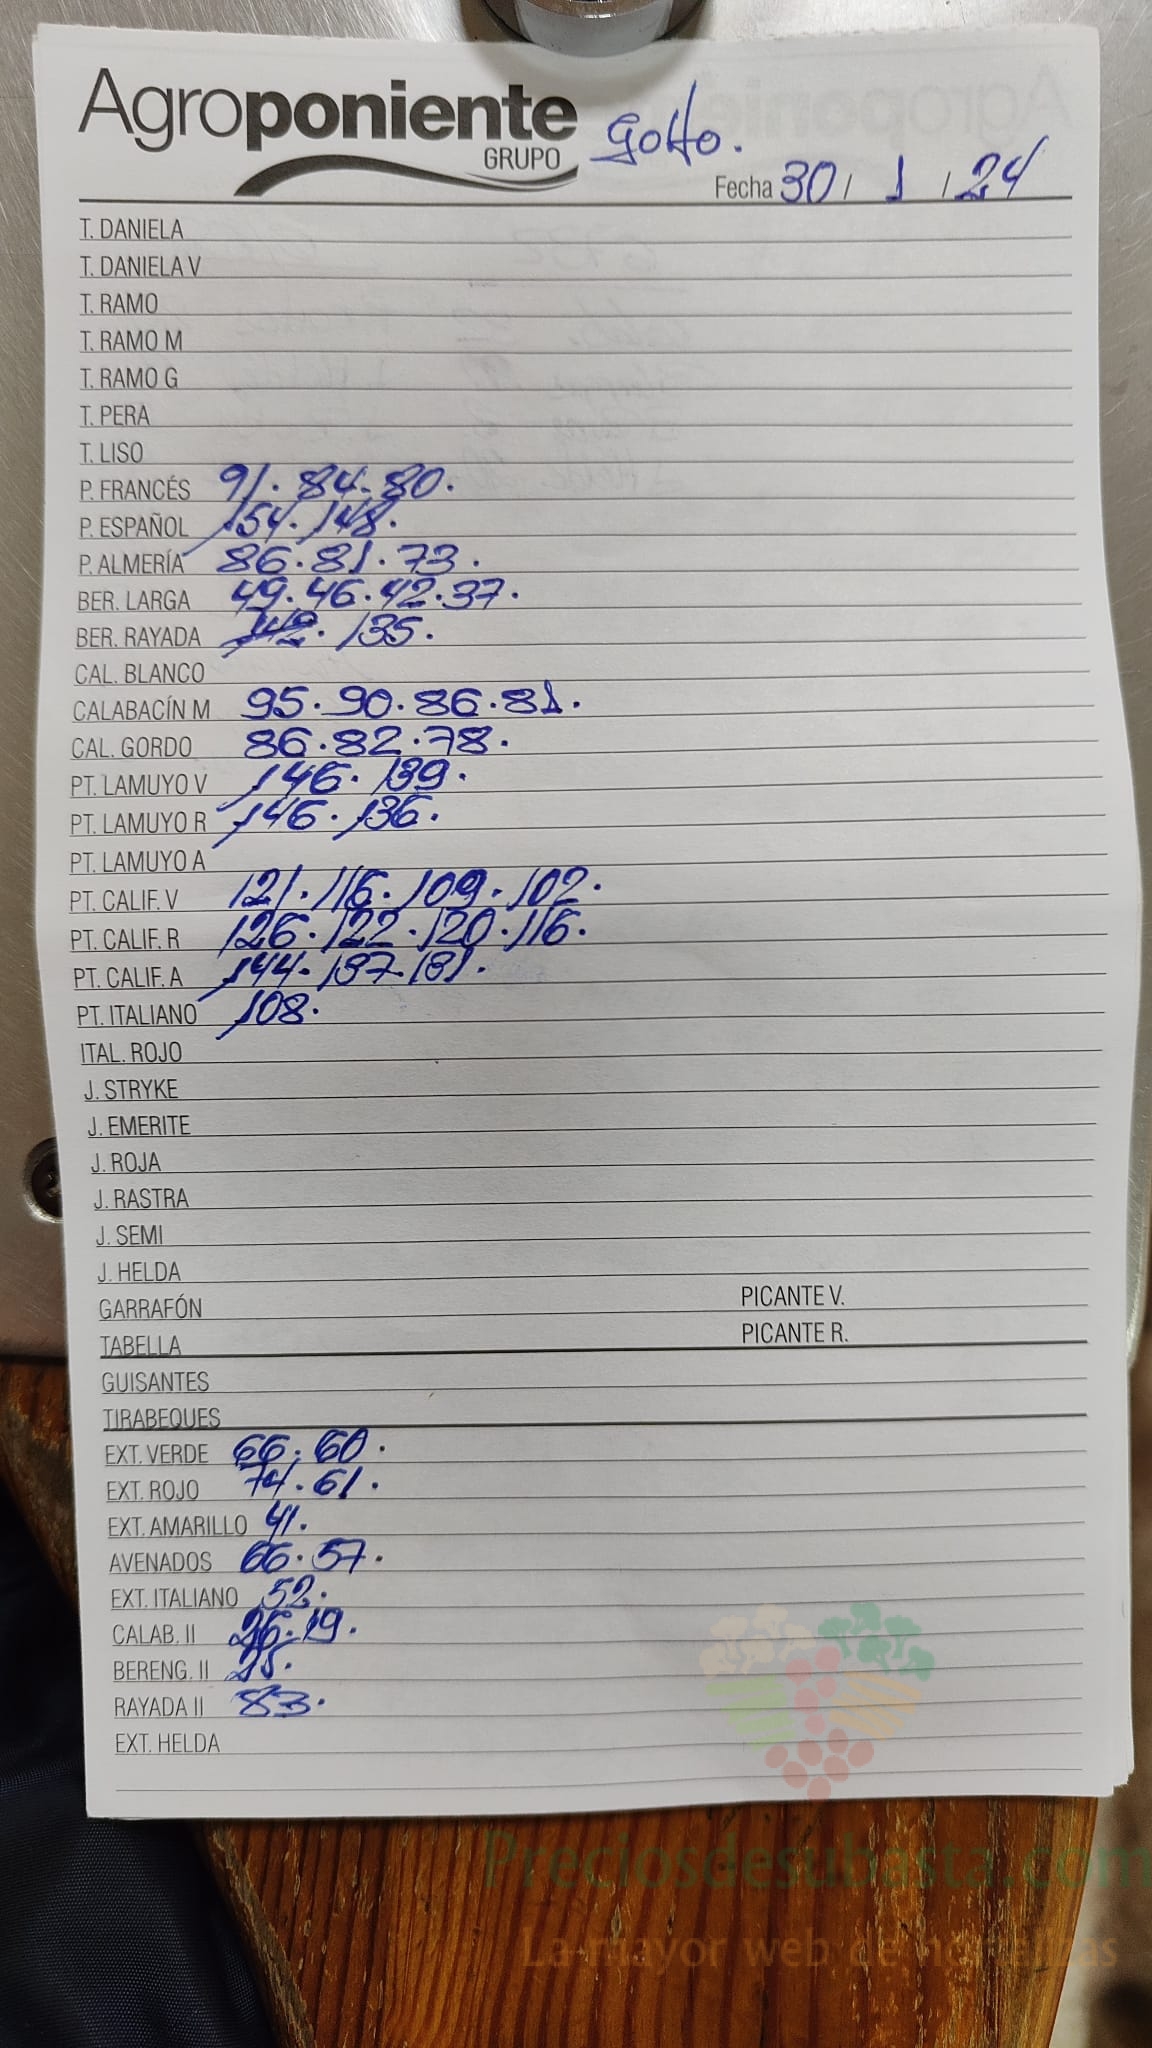 Agroponiente
GRUPO
Golfo.
Fecha 30 / 1 / 24
T. DANIELA
T. DANIELA V
T. RAMO
T. RAMO M
T. RAMO G
T. PERA
T. LISO
P. FRANCÉS 91. 84. 80.
P. ESPAÑOL 154. 148.
P. ALMERÍA 86. 81. 73.
BER. LARGA 49. 46. 42. 37.
BER. RAYADA 142. 135.
CAL. BLANCO
CALABACÍN M 95. 90. 86. 81.
CAL. GORDO 86. 82. 78.
PT. LAMUYO V 146. 139.
PT. LAMUYO R 146. 136.
PT. LAMUYO A
PT. CALIF. V 121. 116. 109. 102.
PT. CALIF. R 126. 122. 120. 116.
PT. CALIF. A 144. 137. 131.
PT. ITALIANO 108.
ITAL. ROJO
J. STRYKE
J. EMERITE
J. ROJA
J. RASTRA
J. SEMI
J. HELDA
GARRAFÓN PICANTE V.
TABELLA PICANTE R.
GUISANTES
TIRABEQUES
EXT. VERDE 66. 60.
EXT. ROJO 74. 61.
EXT. AMARILLO 41.
AVENADOS 66. 57.
EXT. ITALIANO 52.
CALAB. II 26. 19.
BERENG. II 25.
RAYADA II 83.
EXT. HELDA
Preciosdesubasta.com
La mayor web de hortalizas